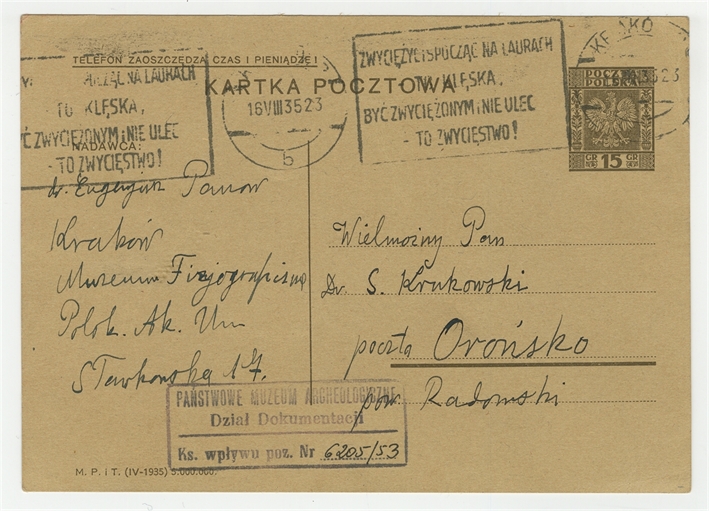 TELEFON ZAOSZCZĘDZA CZAS I PIENIĄDZE!
KARTKA POCZTOWA
ZWYCIĘŻYĆ I SPOCZĄĆ NA LAURACH
TO KLĘSKA,
BYĆ ZWYCIĘŻONYM I NIE ULEC
- TO ZWYCIĘSTWO!
NA LAURACH
TO KLĘSKA,
ZWYCIĘŻONYM I NIE ULEC
- TO ZWYCIĘSTWO!
16 VIII 35 23
b
POCZTA
POLSKA
GR 15 GR
NADAWCA:
dr. Eugenjusz Panow
Kraków
Muzeum Fizjograficzne
Polsk. Ak. Um
Sławkowska 17.
Wielmożny Pan
Dr. S. Krukowski
poczta Orońsko
pow. Radomski
PAŃSTWOWE MUZEUM ARCHEOLOGICZNE
Dział Dokumentacji
Ks. wpływu poz. Nr 6205/53
M. P. i T. (IV-1935) 5.000.000.